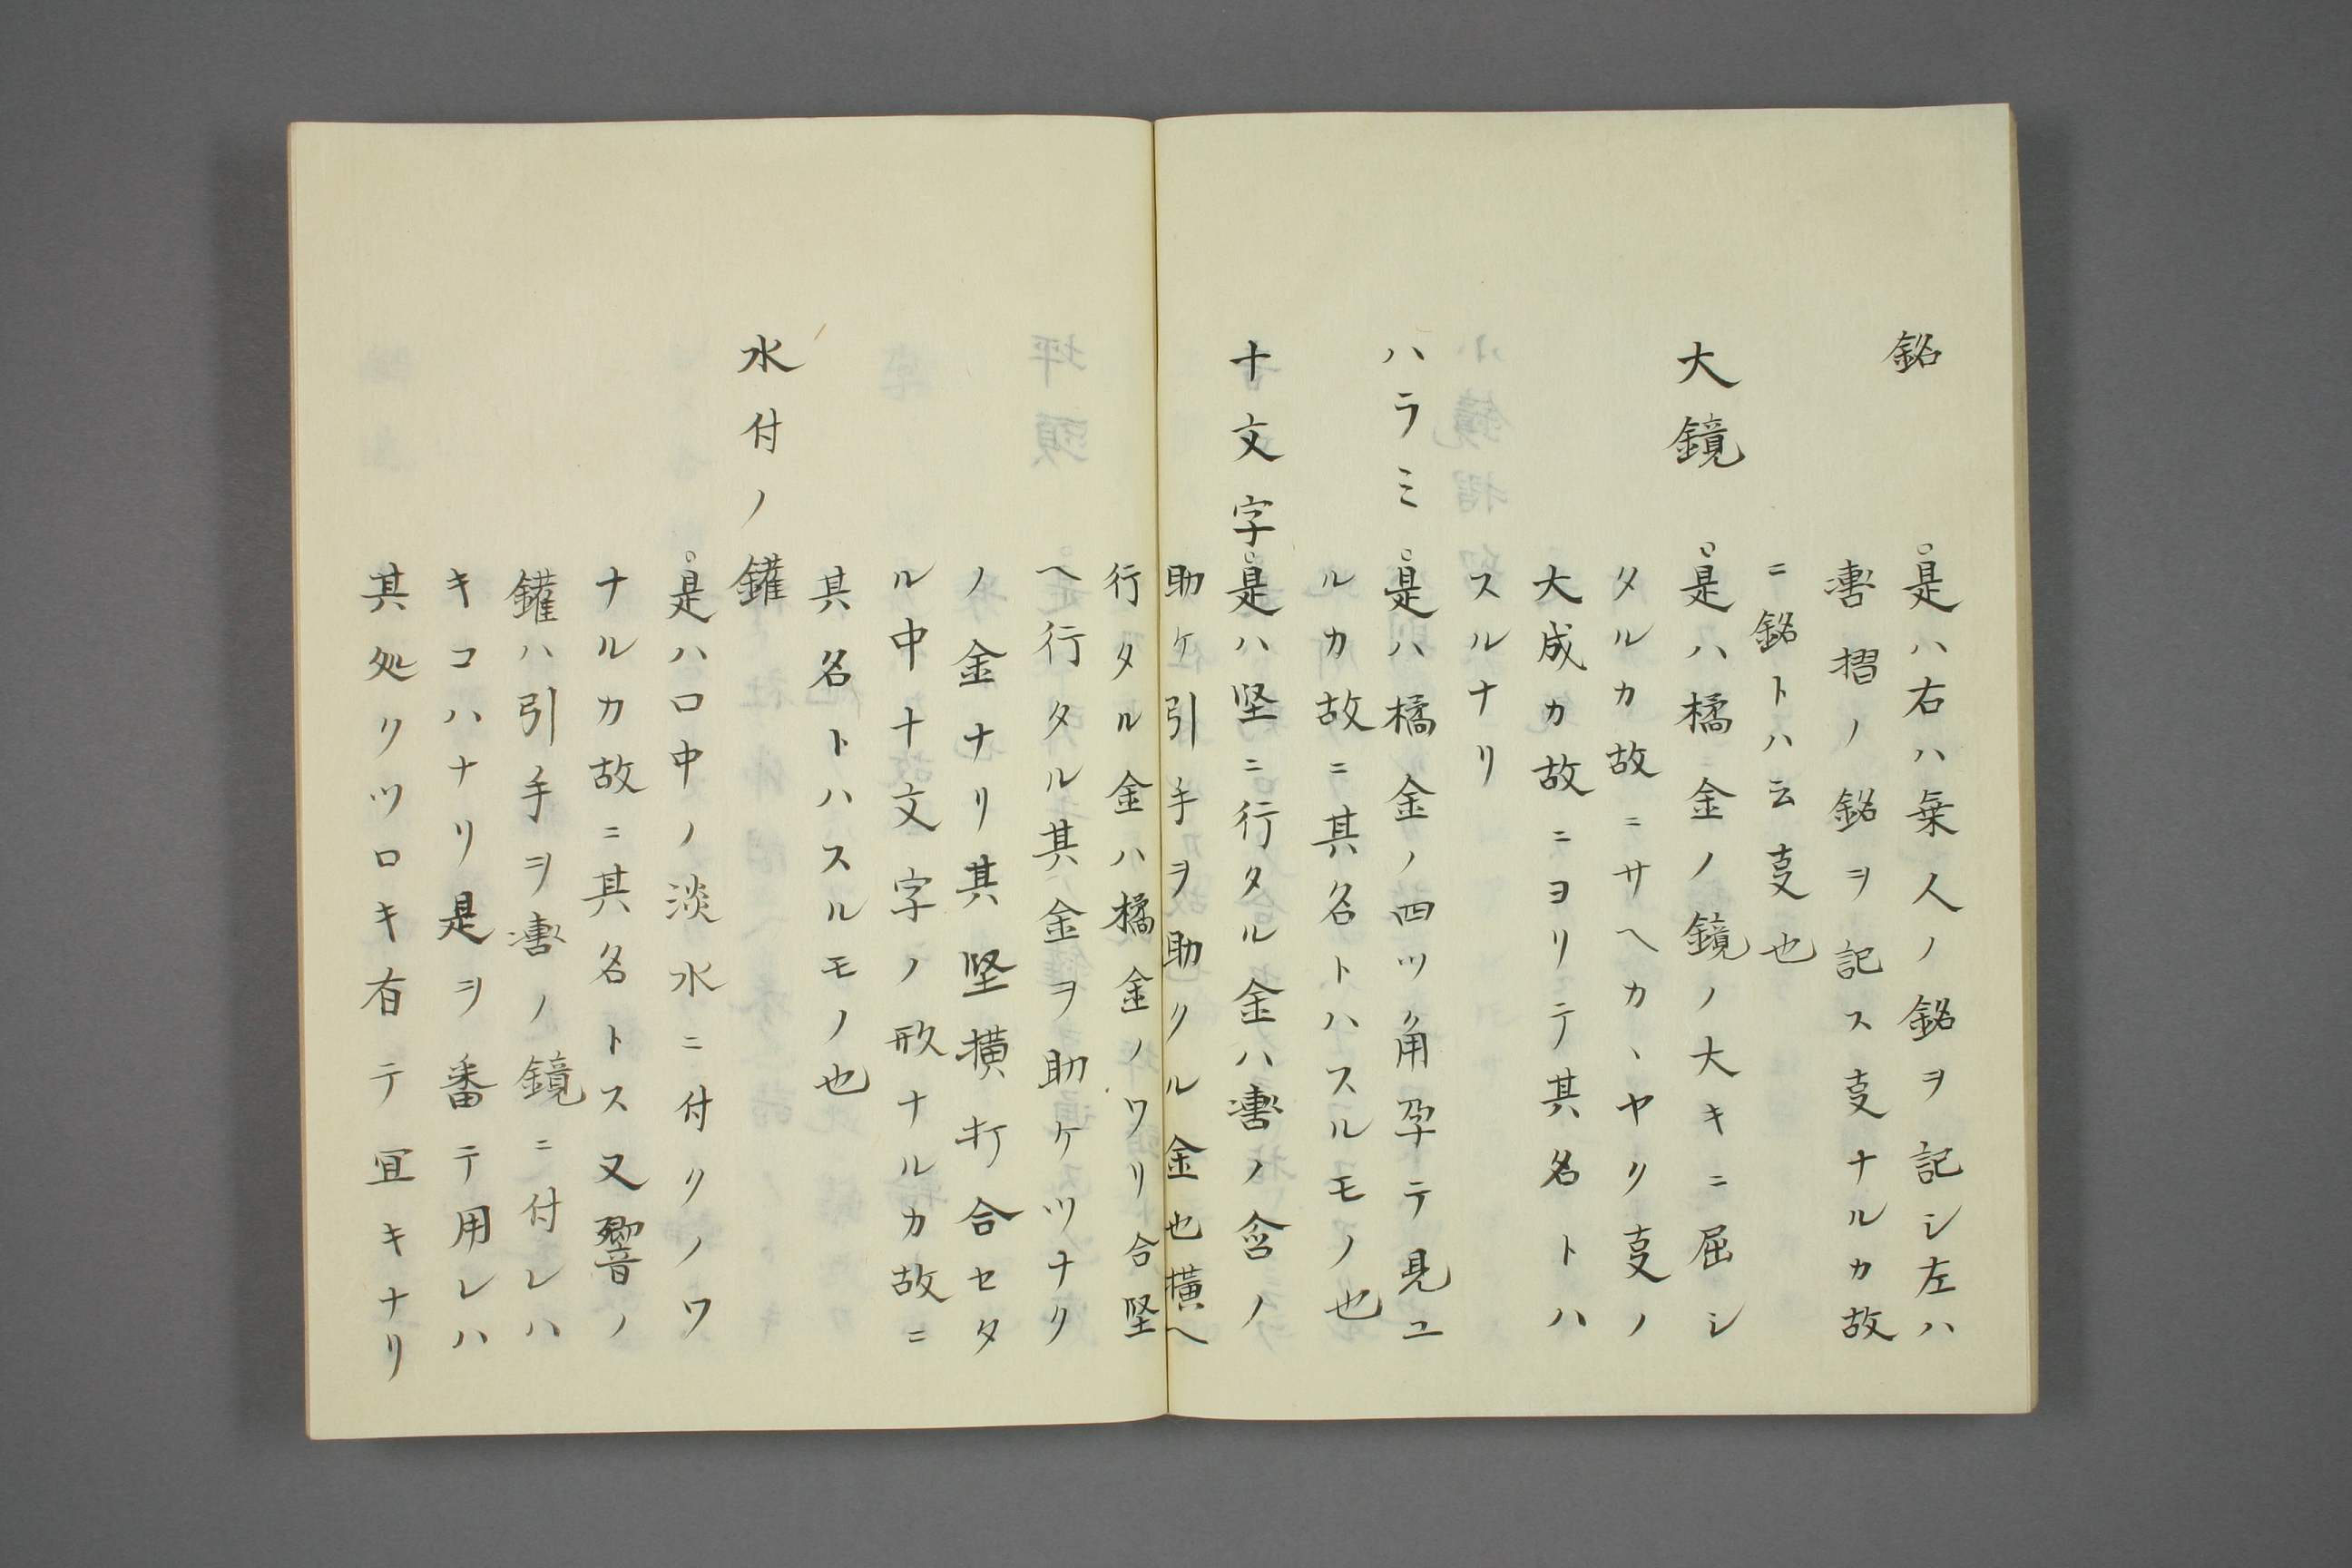 銘
。是ハ右ハ乗人ノ銘ヲ記シ左ハ
轡摺ノ銘ヲ記ス叓ナルカ故
ニ銘トハ云叓也
大鏡
。是ハ橘金ノ鏡ノ大キニ屈シ
タルカ故ニサヘカヽヤク叓ノ
大成カ故ニヨリテ其名トハ
スルナリ
ハラミ
。是ハ橘金ノ四ツノ角孕テ見ユ
ルカ故ニ其名トハスルモノ也
十文字
。是ハ竪ニ行タル金ハ轡ノ含ノ
助ケ引手ヲ助クル金也横ヘ
行タル金ハ橘金ノワリ合竪
ヘ行タル其金ヲ助ケツナク
ノ金ナリ其竪横打合セタ
ル中十文字ノ形ナルカ故ニ
其名トハスルモノ也
水付ノ鑵
。是ハ口中ノ淡水ニ付クノワ
ナルカ故ニ其名トス又響ノ
鑵ハ引手ヲ轡ノ鏡ニ付レハ
キコハナリ是ヲ番テ用レハ
其処クツロキ有テ冝キナリ